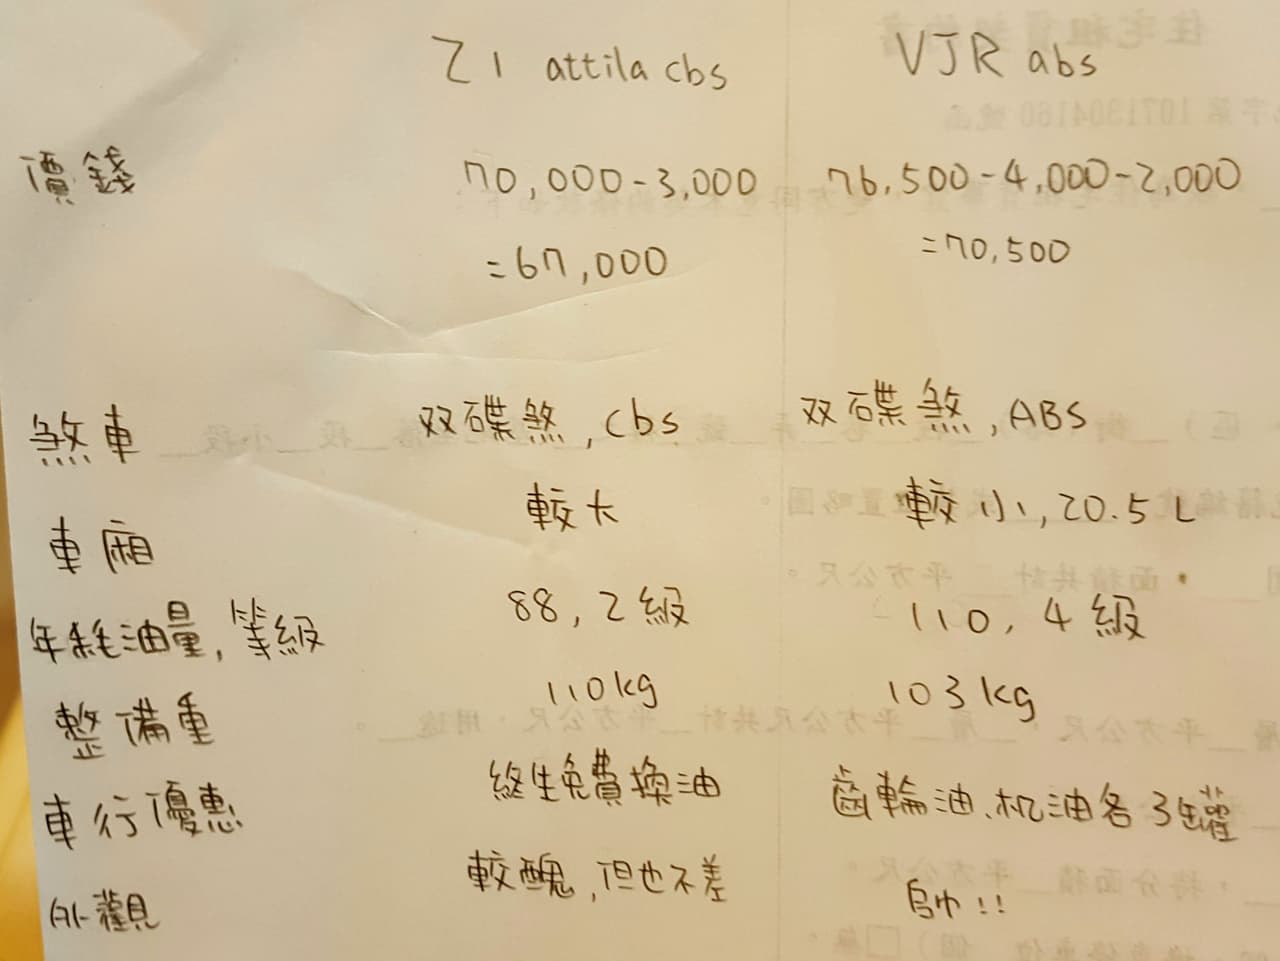 Z1 attila cbs VJR abs
價錢 70,000-3,000 76,500-4,000-2,000
=67,000 =70,500
煞車 双碟煞,cbs 双碟煞,ABS
車廂 較大 較小,20.5L
年耗油量,等級 88,2級 110,4級
整備重 110kg 103kg
車行優惠 終生免費換油 齒輪油、机油各3罐
外觀 較醜,但也不差 帥!!